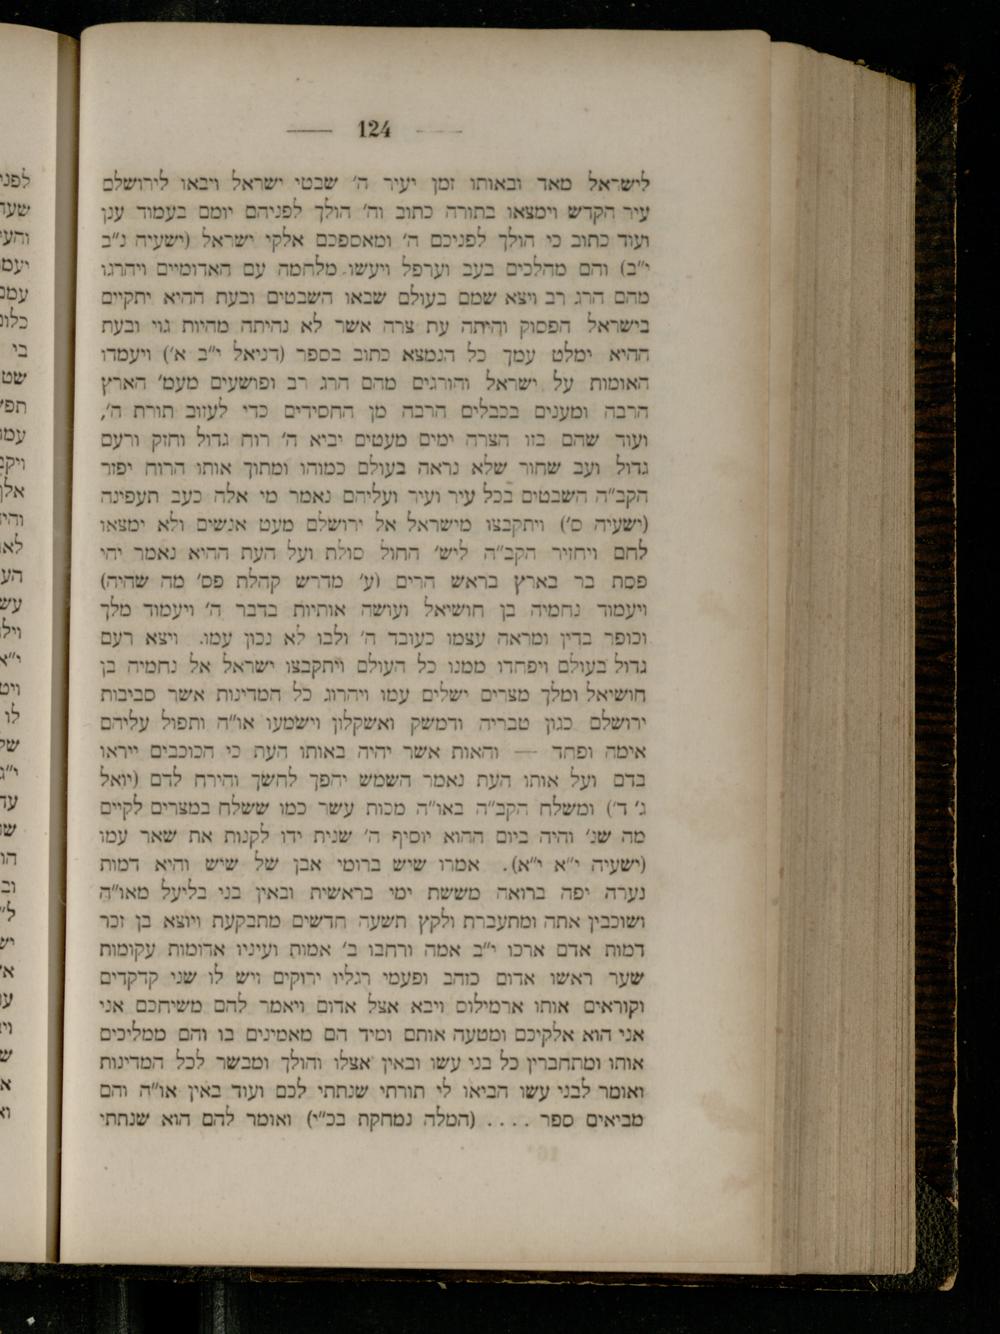 — 124 —
לישראל מאד ובאותו זמן יעיר ה׳ שבטי ישראל ויבאו לירושלם
עיר הקדש וימצאו בתורה כתוב וה׳ הולך לפניהם יומם בעמוד ענן
ועוד כתוב כי הולך לפניכם ה׳ ומאספכם אלקי ישראל (ישעיה נ״ב
י״ב) והם מהלכים בעב וערפל ויעשו מלחמה עם האדומיים ויהרגו
מהם הרג רב ויצא שמם בעולם שבאו השבטים ובעת ההיא יתקיים
בישראל הפסוק והיתה עת צרה אשר לא נהיתה מהיות גוי ובעת
ההיא ימלט עמך כל הנמצא כתוב בספר (דניאל י״ב א׳) ויעמדו
האומות על ישראל והורגים מהם הרג רב ופושעים מעמ׳ הארץ
הרבה ומענים בכבלים הרבה מן החסידים כדי לעזוב תורת ה׳,
ועוד שהם בזו הצרה ימים מעטים יביא ה׳ רוח גדול וחזק ורעם
גדול ועב שחור שלא נראה בעולם כמוהו ומתוך אותו הרוח יפזר
הקב״ה השבטים בכל עיר ועיר ועליהם נאמר מי אלה כעב תעפינה
(ישעיה ס׳) ויתקבצו מישראל אל ירושלם מעט אנשים ולא ימצאו
לחם ויחזיר הקב״ה ליש׳ החול סולת ועל העת ההיא נאמר יהי
פסת בר בארץ בראש הרים (ע׳ מדרש קהלת פס׳ מה שהיה)
ויעמוד נחמיה בן חושיאל ועושה אותיות בדבר ה׳ ויעמוד מלך
וכופר בדין ומראה עצמו כעובד ה׳ ולבו לא נכון עמו. ויצא רעם
גדול בעולם ויפחדו ממנו כל העולם ויתקבצו ישראל אל נחמיה בן
חושיאל ומלך מצרים ישלים עמו ויהרוג כל המדינות אשר סביבות
ירושלם כגון טבריה ודמשק ואשקלון וישמעו או״ה ותפול עליהם
אימה ופחד — והאות אשר יהיה באותו העת כי הכוכבים ייראו
בדם ועל אותו העת נאמר השמש יהפך לחשך והירח לדם (יואל
ג׳ ד׳) ומשלח הקב״ה באו״ה מכות עשר כמו ששלח במצרים לקיים
מה שנ׳ והיה ביום ההוא יוסיף ה׳ שנית ידו לקנות את שאר עמו
(ישעיה י״א י״א). אמרו שיש ברומי אבן של שיש והיא דמות
נערה יפה ברואה מששת ימי בראשית ובאין בני בליעל מאו״ה
ושוכבין אתה ומתעברת ולקץ תשעה חדשים מתבקעת ויוצא בן זכר
דמות אדם ארכו י״ב אמה ורחבו ב׳ אמות ועיניו אדומות עקומות
שער ראשו אדום כזהב ופעמי רגליו ירוקים ויש לו שני קדקדים
וקוראים אותו ארמילוס ויבא אצל אדום ויאמר להם משיחכם אני
אני הוא אלקיכם ומטעה אותם ומיד הם מאמינים בו והם ממליכים
אותו ומתחברין כל בני עשו ובאין אצלו והולך ומבשר לכל המדינות
ואומר לבני עשו הביאו לי תורתי שנתתי לכם ועוד באין או״ה והם
מביאים ספר .... (המלה נמחקת בכ״י) ואומר להם הוא שנתתי